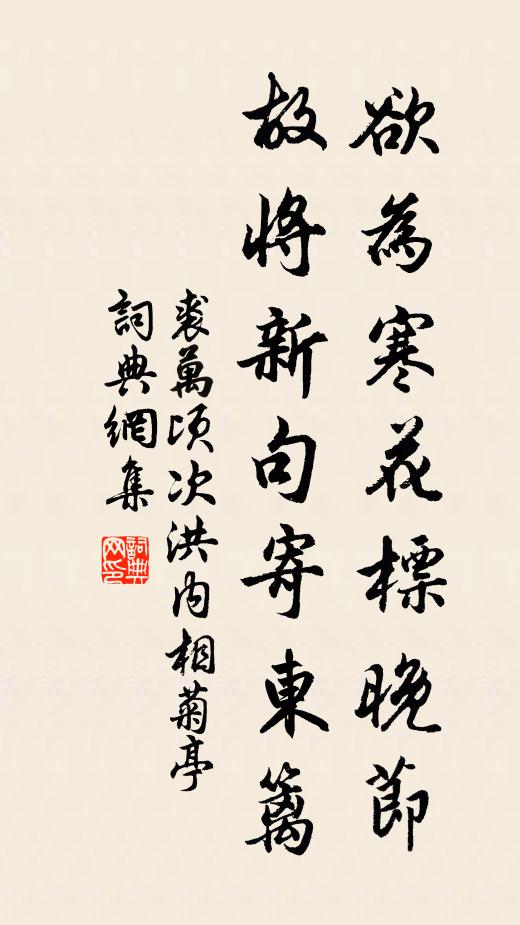 欲為寒花標晚節
故將新句寄東籬
裘萬頃次洪內相菊亭
詞典網集
詞典网印